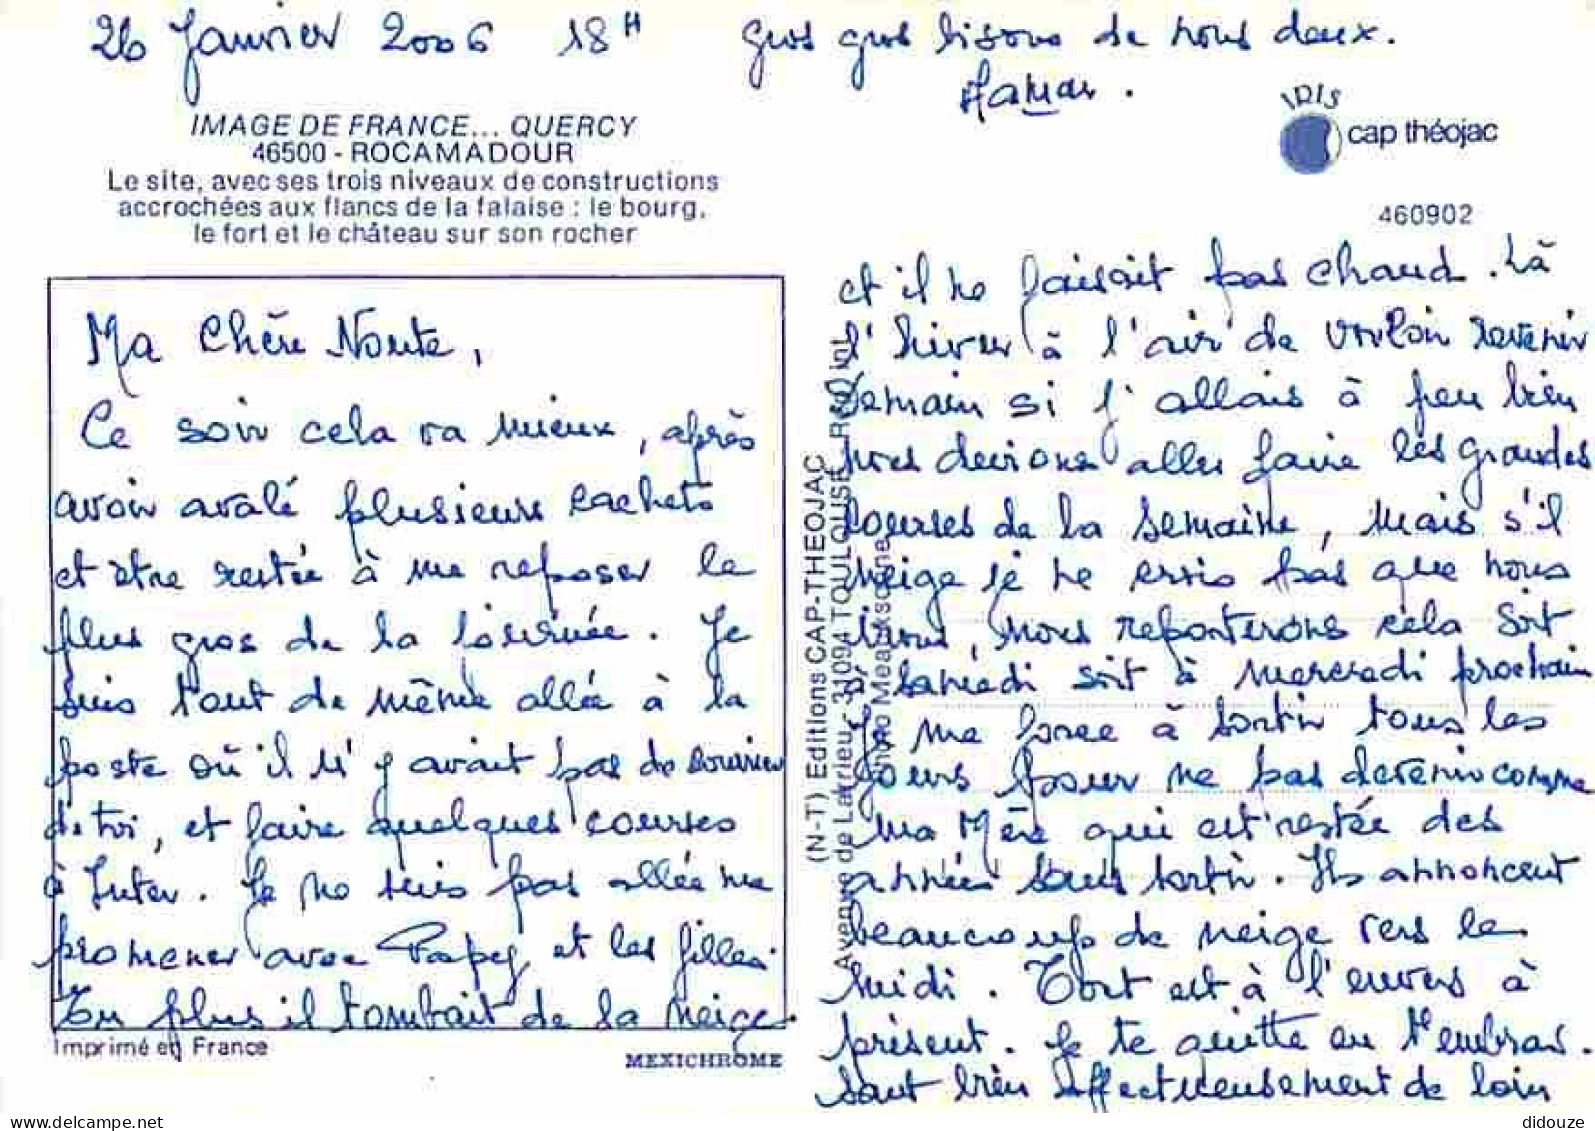 26 Janvier 2006 18H
Gros gros bisous de nous deux.
Maman.
IMAGE DE FRANCE... QUERCY
46500 - ROCAMADOUR
Le site, avec ses trois niveaux de constructions
accrochées aux flancs de la falaise : le bourg,
le fort et le château sur son rocher
IRIS
cap théojac
460902
Ma Chère Noute,
Ce soir cela va mieux, après
avoir avalé plusieurs cachets
et être restée à me reposer le
plus gros de la journée. Je
suis tout de même allée à la
poste où il n'y avait pas de courrier
de toi, et faire quelques courses
à Inter. Je ne suis pas allée me
promener avec Papy et les filles.
En plus il tombait de la neige.
Imprimé en France
MEXICHROME
(N-T) Editions CAP-THEOJAC
Avenue de Larrieu, 31094 TOULOUSE
et il ne faisait pas chaud. Là
l'hiver à l'air de vouloir revenir
Demain si j'allais à peu bien
nous devions aller faire les grandes
courses de la semaine, mais s'il
neige je ne crois pas que nous
irons, nous reporterons cela soit
à samedi soit à mercredi prochain
Je me force à sortir tous les
jours pour ne pas devenir comme
ma Mère qui est restée des
années sans sortir. Ils annoncent
beaucoup de neige vers le
midi. Tout est à l'envers à
présent. Je te quitte en t'embras.
sant bien affectueusement de loin
didouze